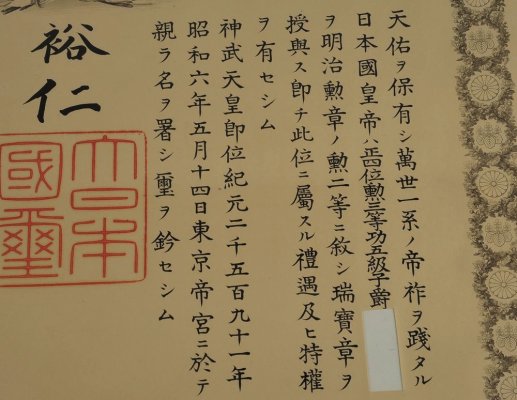 天佑ヲ保有シ萬世一系ノ帝祚ヲ踐タル
日本國皇帝ハ正四位勲三等功五級子爵
ヲ明治勲章ノ勲二等ニ敍シ瑞寶章ヲ
授與ス即チ此位ニ屬スル禮遇及ヒ特權
ヲ有セシム
神武天皇即位紀元二千五百九十一年
昭和六年五月十四日東京帝宮ニ於テ
親ラ名ヲ署シ璽ヲ鈐セシム
裕仁
大日本
國璽